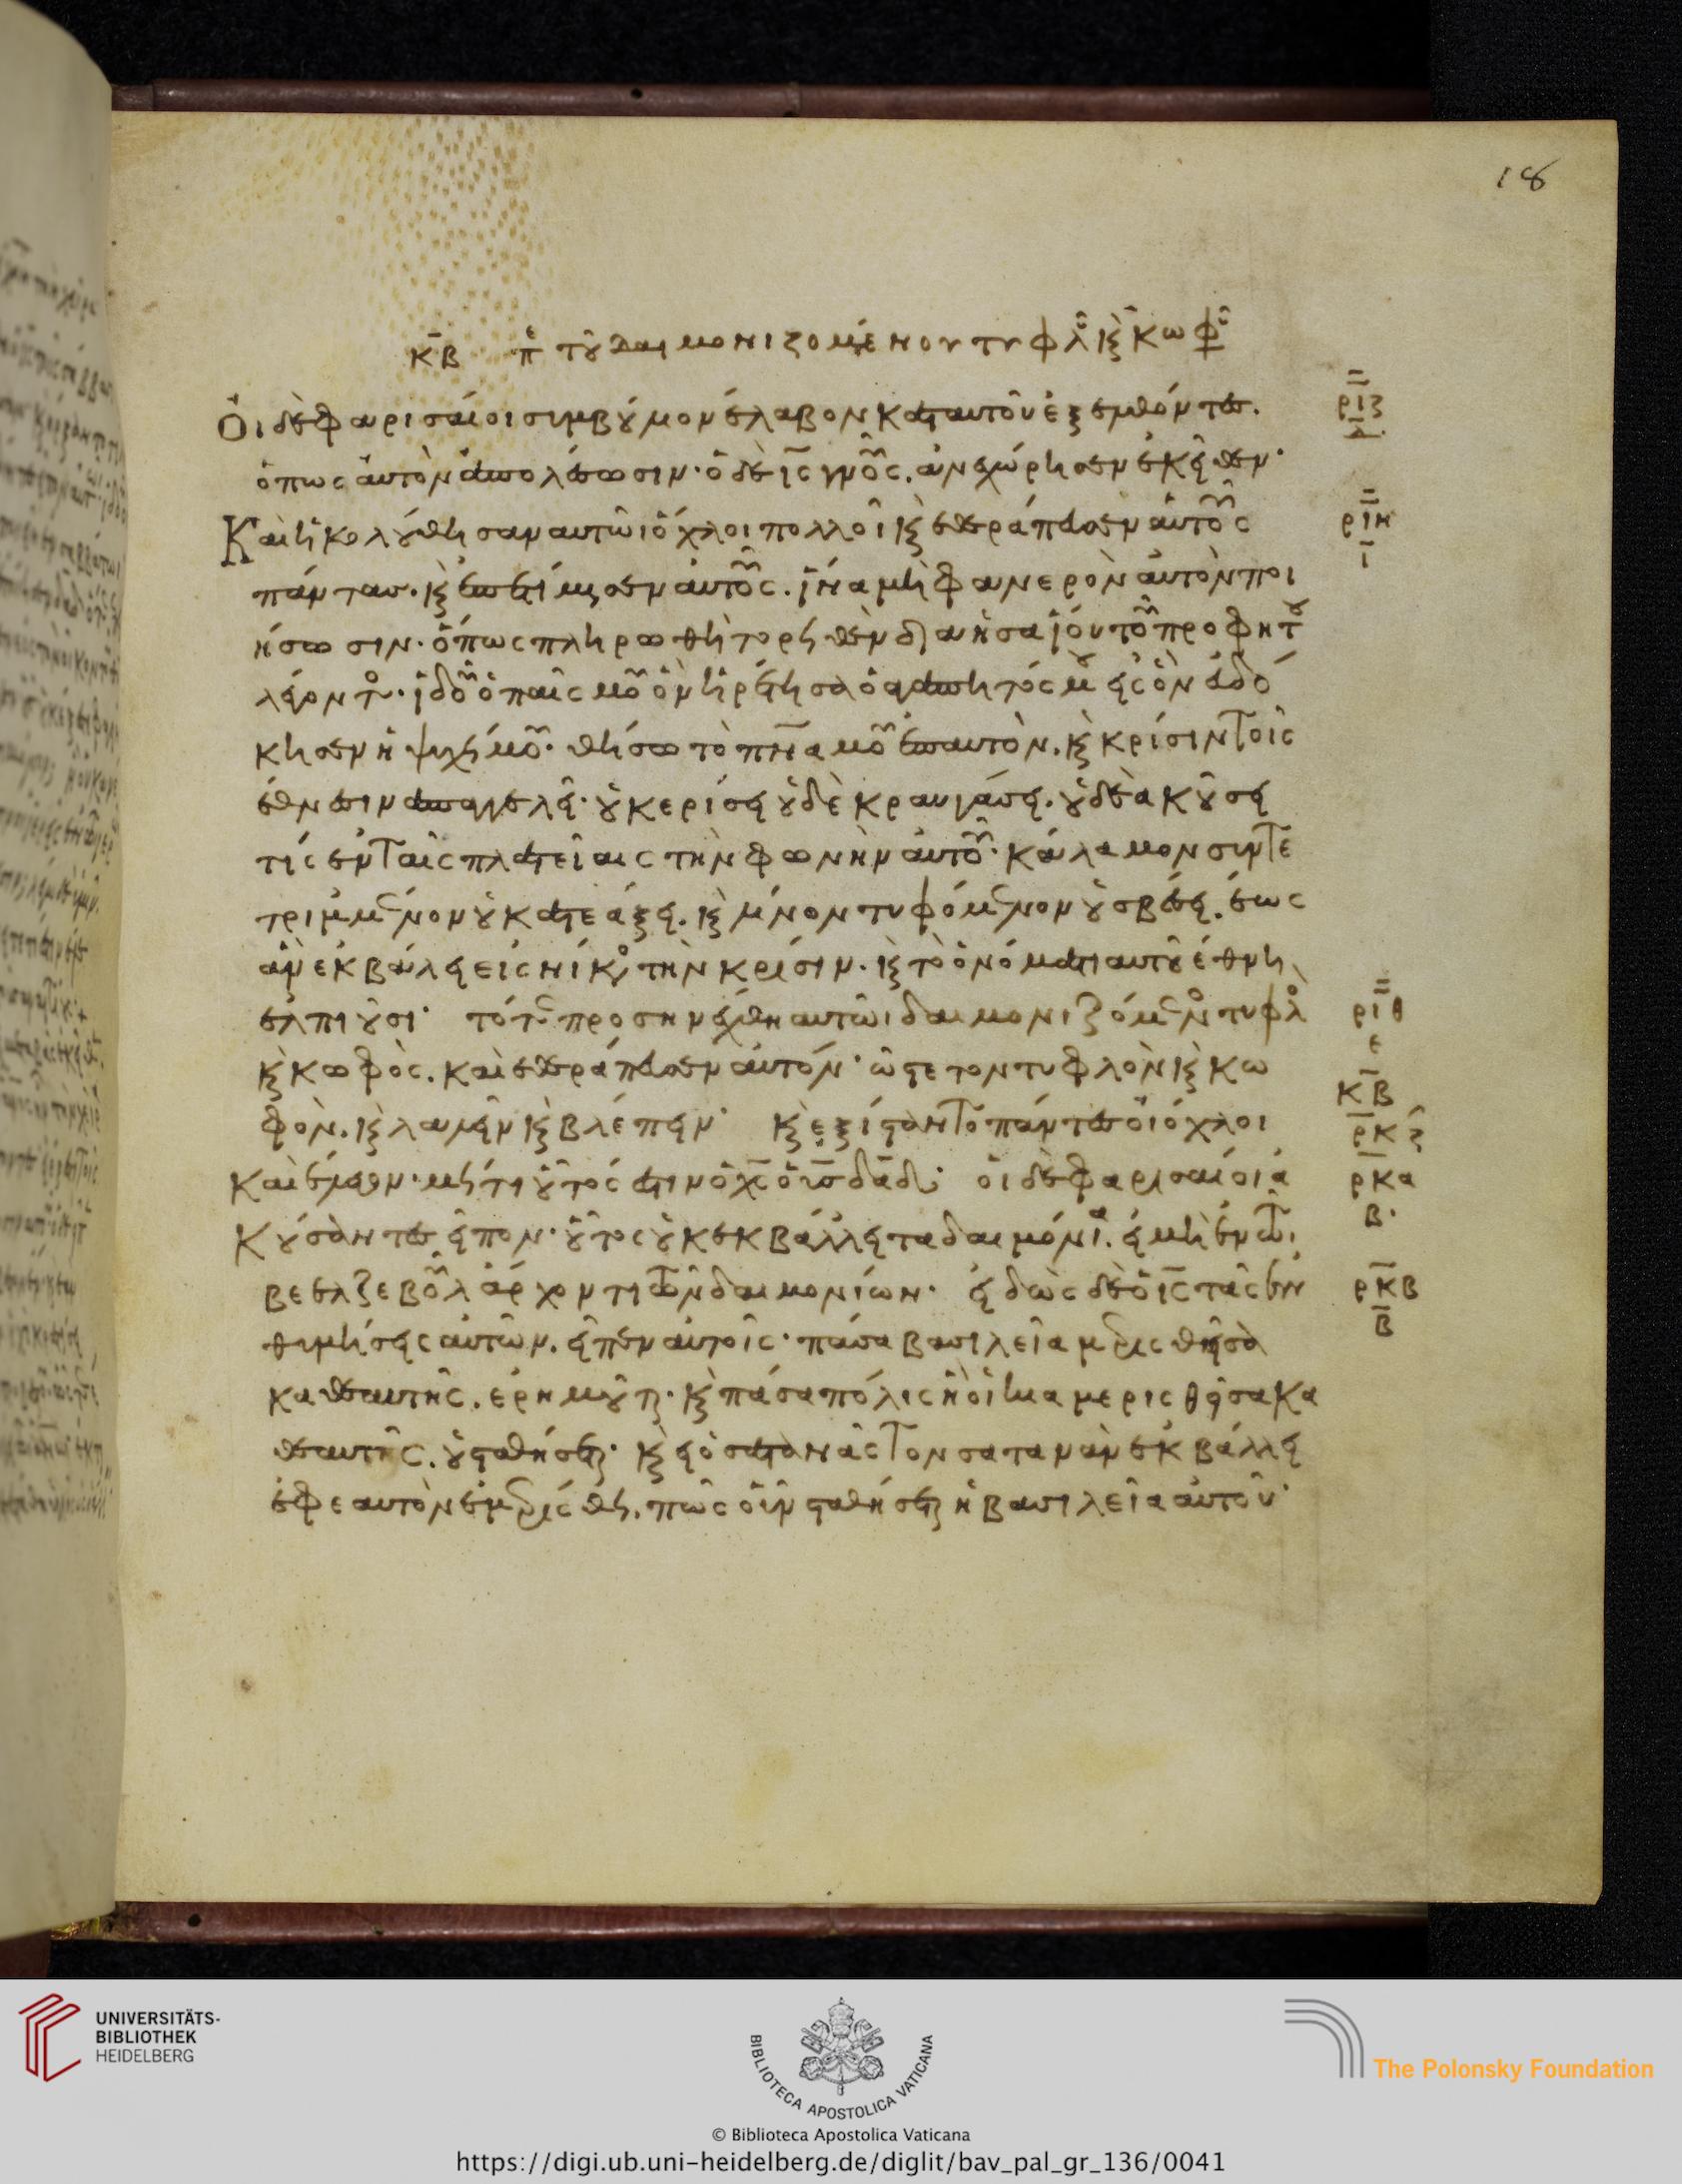 18
κβ π τοῦ δαιμονιζομένου τυφλοῦ κ κωφοῦ
Οἱ δὲ φαρισαῖοι συμβούμον ἔλαβον κατ αυτοῦ ἐξελθόντες.
ὅπως αὐτὸν ἀπολέσωσιν· ὁ δὲ ις γνοὺς. ἀνεχώρησεν ἐκεῖθεν·
ριζ
Καὶ ἠκολούθησαν αυτῶι ὄχλοι πολλοὶ κ ἐθεράπευσεν αὐτοὺς
ριη
ι
πάντας. κ ἐπετίμησεν αὐτοῖς. ἵνα μὴ φανερὸν αὐτὸν ποι
ήσωσιν. ὅπως πληρωθῆ τὸ ρηθὲν δι αἠσαΐου τοῦ προφήτου
λέγοντος. ἰδοὺ ὁ παῖς μοῦ ὃν ἡρέτησα ὁ ἀγαπητός μου εἰς ὃν εὐδό
κησεν ἡ ψυχή μοῦ. θήσω τὸ πνα μοῦ ἐπ αυτὸν. κ κρίσιν τοῖς
ἔθνεσιν ἀπαγγελεῖ· οὐκ ερίσει οὐδὲ κραυγάσει. οὐδὲ ακούσει
τίς ἐν ταῖς πλατείαις τὴν φωνὴν αὐτοῦ. κάλαμον συντε
τριμμένον οὐ κατεάξει. κ λίνον τυφόμενον οὐ σβέσει. ἕως
ἂν ἐκβάλει εἰς νίκος τὴν κρίσιν. κ τῶ ὀνόματι αυτοῦ ἔθνη
ἐλπιοῦσι· τότε προσηνέχθη αυτῶι δαιμονιζόμενος τυφλὸς
ριθ
ε
κ κωφὸς. καὶ ἐθεράπευσεν αὐτόν· ὥστε τον τυφλὸν κ κω
κβ
φὸν. κ λαλεῖν κ βλέπειν· κ ἐξίσταντο πάντες οἱ ὄχλοι
ρκ
καὶ ἔλεγον. μήτι οὗτός ἐστιν ὁ χς ὁ υς δαδ; οἱ δὲ φαρισαίοι ἀ
ρκα
β
κούσαντες εἶπον. οὗτος οὐκ ἐκβάλλει τα δαιμόνια. εἰ μὴ ἐν τῶ
βεελζεβοῦλ ἄρχοντι τῶν δαιμονίων. εἰδὼς δὲ ὁ ις τὰς ἐν
ρκβ
β
θυμήσεις αὐτῶν. εἶπεν αὐτοῖς. πᾶσα βασιλεία μερισθεῖσα
καθεαυτῆς. ερημοῦται. κ πάσα πόλις ἢ οἰκία μερισθεῖσα κα
θεαυτῆς. οὐ σταθήσεται. κ εἰ ὁ σατανᾶς τον σατανὰν ἐκβάλλει
ἐφ εαυτὸν ἐμερίσθη. πῶς οὖν σταθήσεται ἡ βασιλεία αὐτοῦ·
UNIVERSITÄTS-
BIBLIOTHEK
HEIDELBERG
BIBLIOTECA APOSTOLICA VATICANA
The Polonsky Foundation
© Biblioteca Apostolica Vaticana
https://digi.ub.uni-heidelberg.de/diglit/bav_pal_gr_136/0041